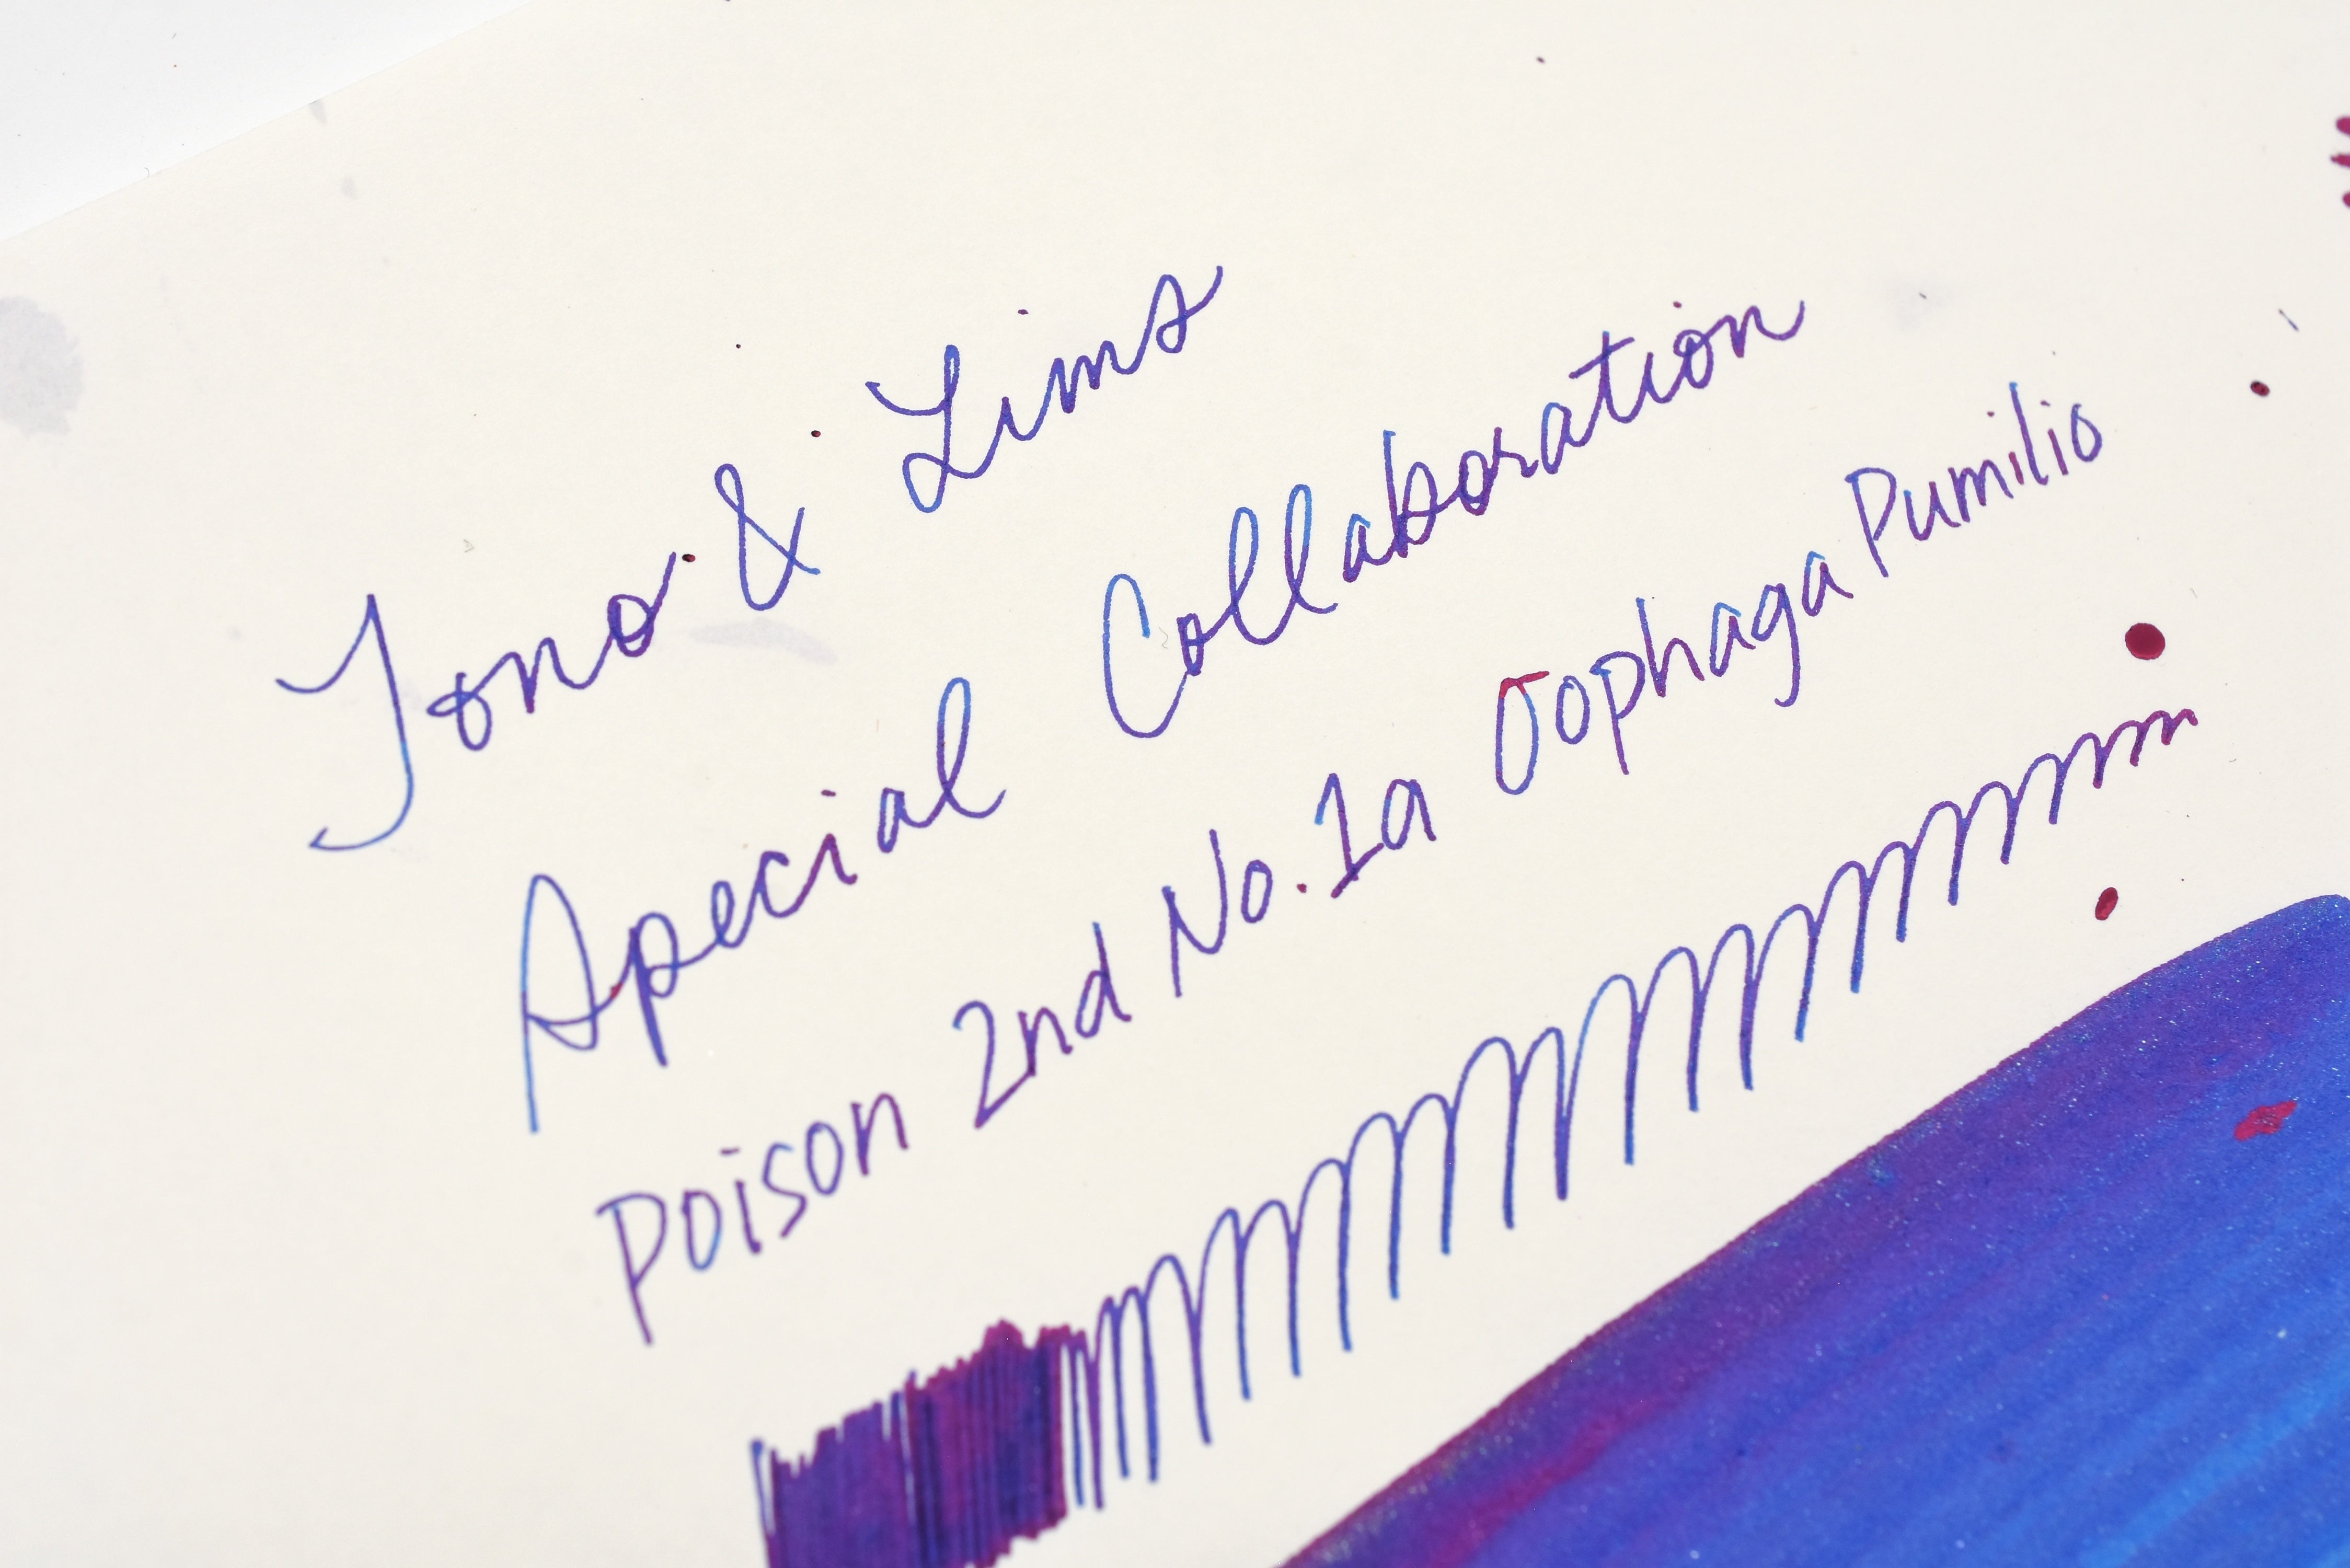 Tono & Lims
Special Collaboration
Poison 2nd No.1a Oophaga Pumilio